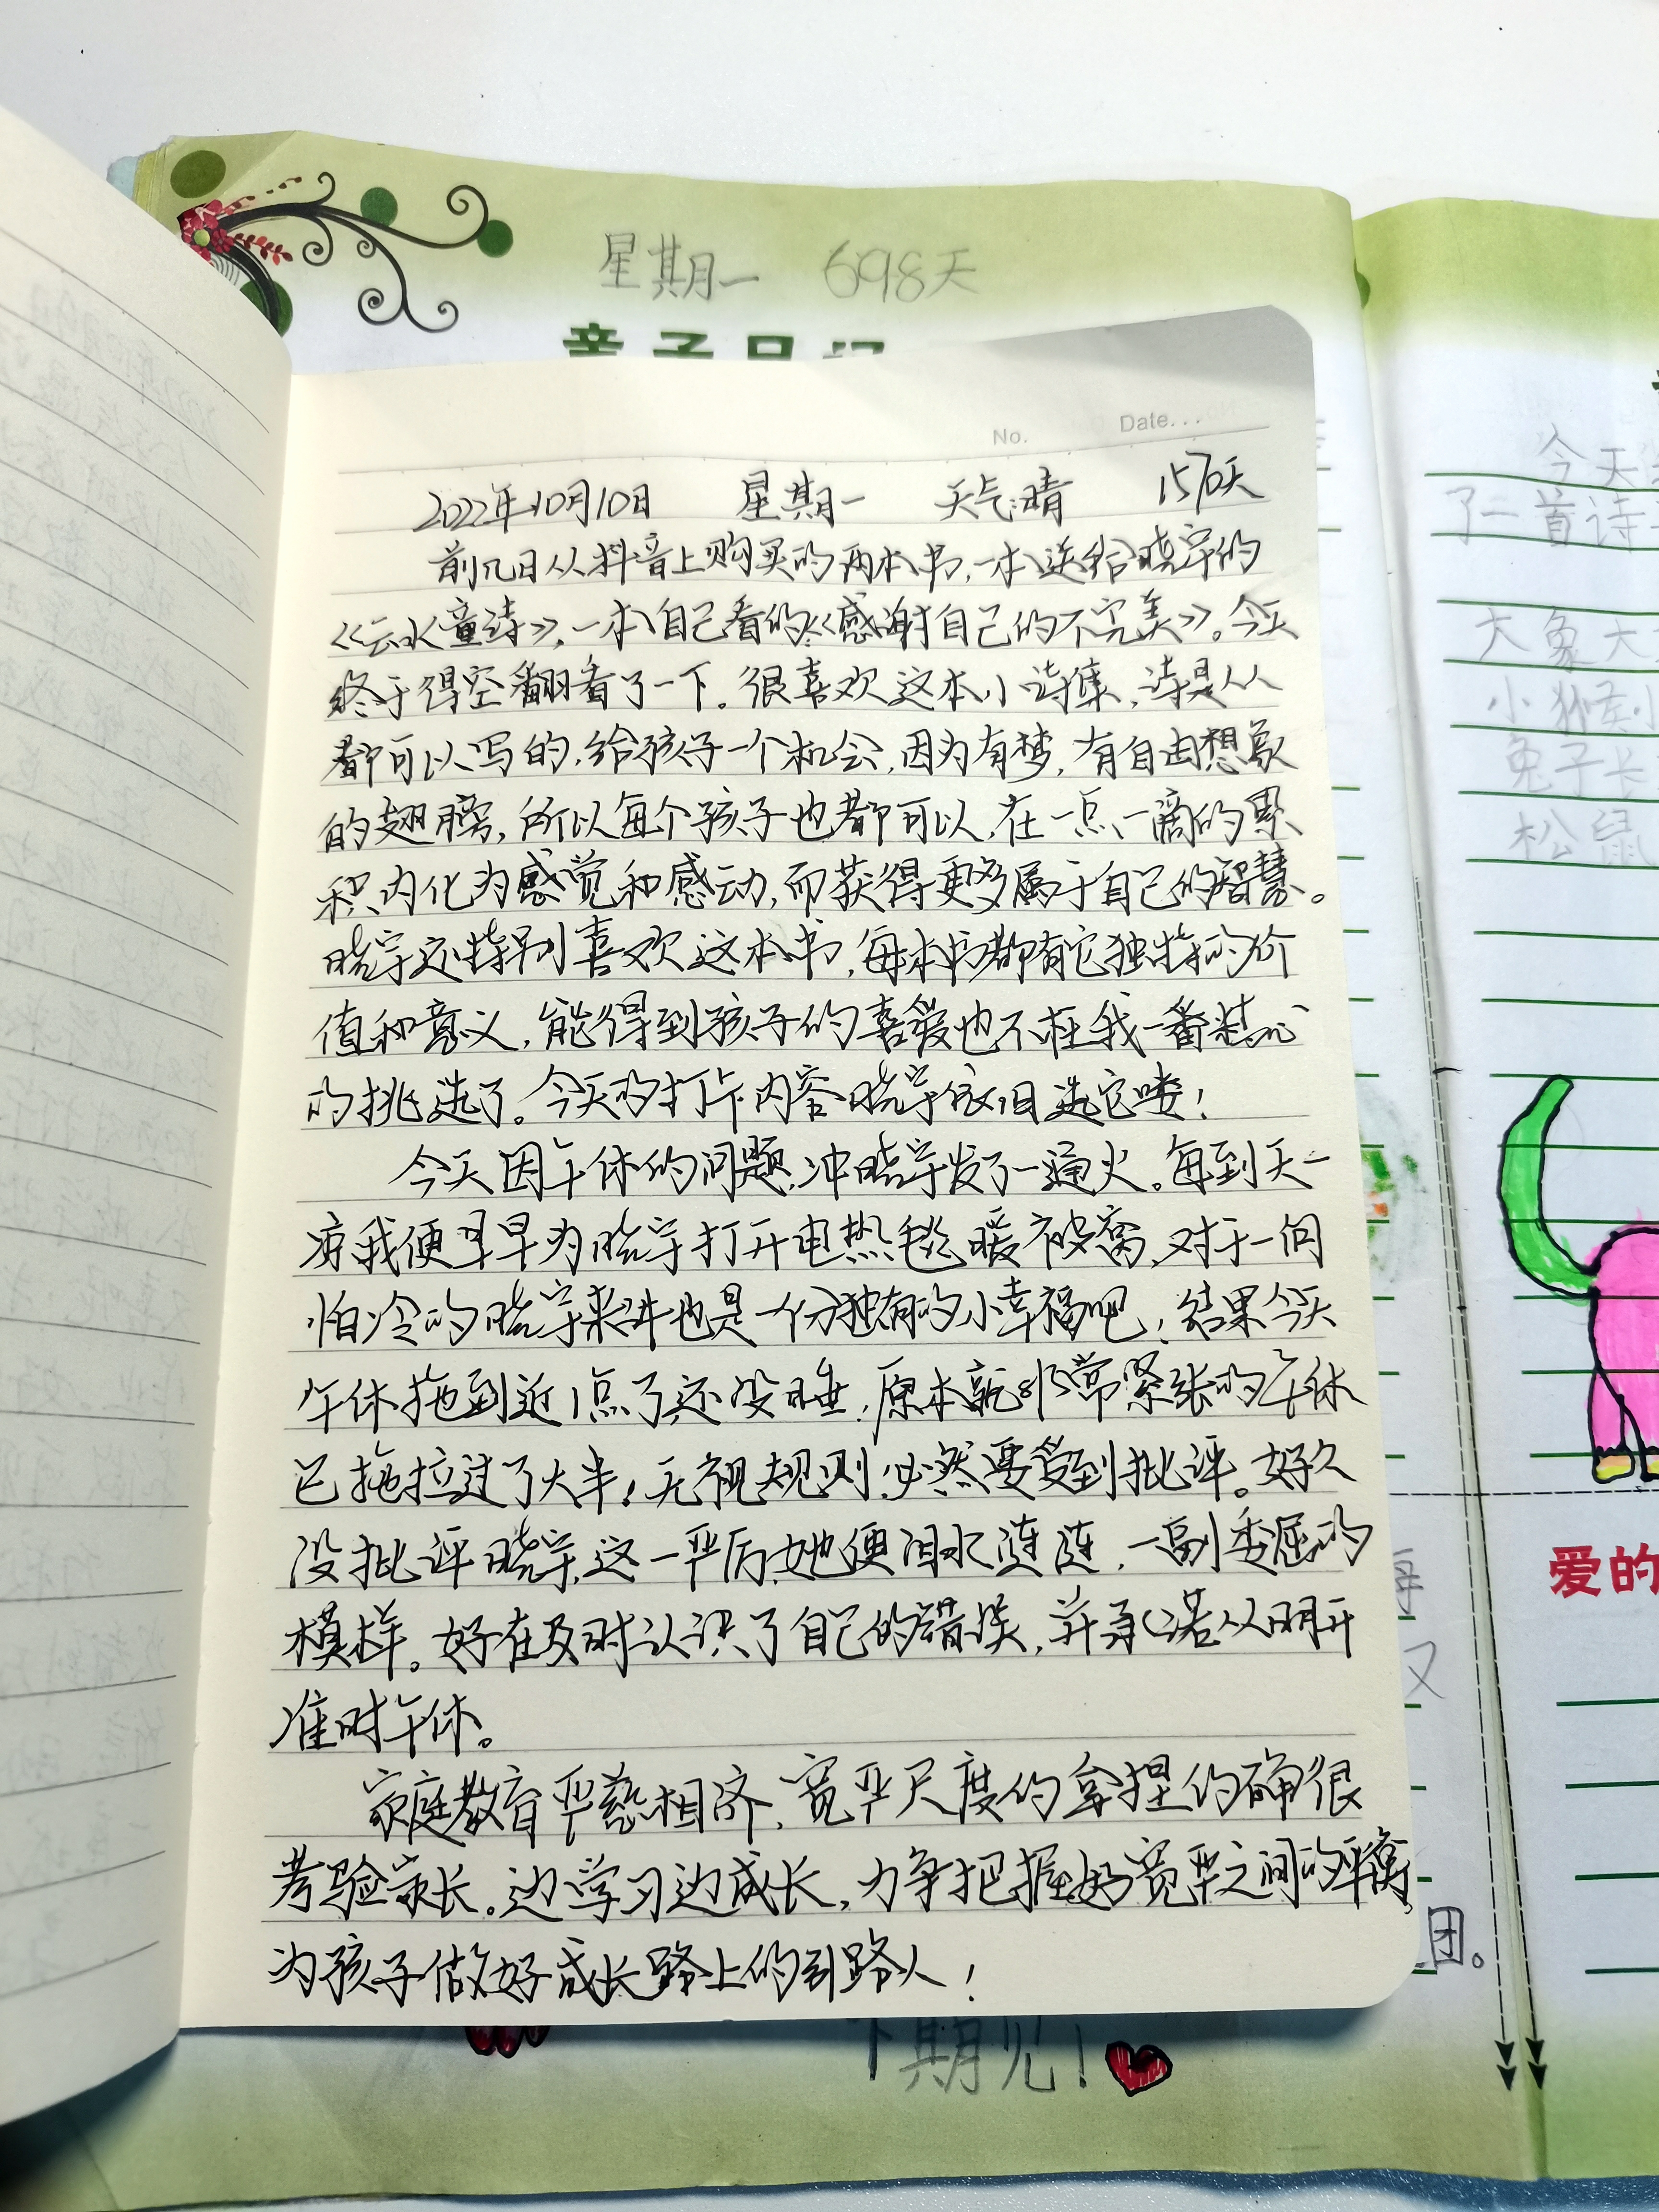 星期一 698天
亲子日记
No. Date...
2022年10月10日 星期一 天气:晴 1570天
前几日从抖音上购买的两本书,一本送给晓宇的
《云水童诗》,一本自己看的《感谢自己的不完美》。今天
终于得空翻看了一下。很喜欢这本小诗集,诗是人人
都可以写的,给孩子一个机会,因为有梦,有自由想象
的翅膀,所以每个孩子也都可以,在一点一滴的累
积内化为感觉和感动,而获得更多属于自己的智慧。
晓宇还特别喜欢这本书,每本书都有它独特的价
值和意义,能得到孩子的喜爱也不枉我一番精心
的挑选了。今天的打卡内容晓宇依旧选它喽!
今天因午休的问题,冲晓宇发了一通火。每到天一
凉我便早早为晓宇打开电热毯暖被窝,对于一向
怕冷的晓宇来讲也是一份独有的小幸福吧!结果今天
午休拖到近1点了还没睡,原本就非常紧张的午休
已拖拉过了大半!无视规则,必然要受到批评。好久
没批评晓宇,这一严厉,她便泪水涟涟,一副委屈的
模样。好在及时认识了自己的错误,并承诺从明开
准时午休。
家庭教育严慈相济,宽严尺度的拿捏的确很
考验家长。边学习边成长,力争把握好宽严之间的平衡,
为孩子做好成长路上的引路人!
团。
下期见!
今天
了二首诗
大象大
小猴小
兔子长
松鼠
爱的
每
又